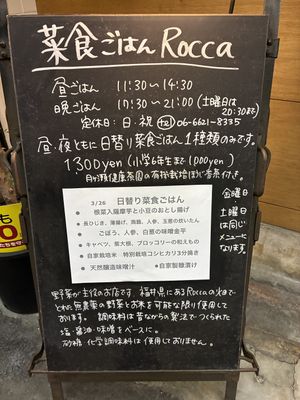 菜食ごはん Rocca
昼ごはん 11:30〜14:30
晩ごはん 17:30〜21:00(土曜日は20:30まで)
定休日:日・祝 06-6621-8335
昼・夜ともに日替り菜食ごはん1種類のみです。
1300yen(小学6年生まで1000yen)
月ヶ瀬健康茶園の有機栽培ほうじ番茶付き。
3/26 日替り菜食ごはん
根菜入薩摩芋と小豆のおとし揚げ
・長ひじき、薄揚げ、蒟蒻、人参、玉葱の炊いたん
ごぼう、人参、白葱の味噌金平
・キャベツ、紫大根、ブロッコリーの和えもの
・自家栽培米 特別栽培コシヒカリ3分搗き
・天然醸造味噌汁 ・自家製糠漬け
金曜日
土曜日
は同じ
メニューに
なります。
野菜が主役のお店です。福井県にあるRoccaの畑で
とれた無農薬の野菜とお米を可能な限り使用して
おります。調味料は昔ながらの製法でつくられた
塩・醤油・味噌をベースに。
砂糖・化学調味料は使用しておりません。